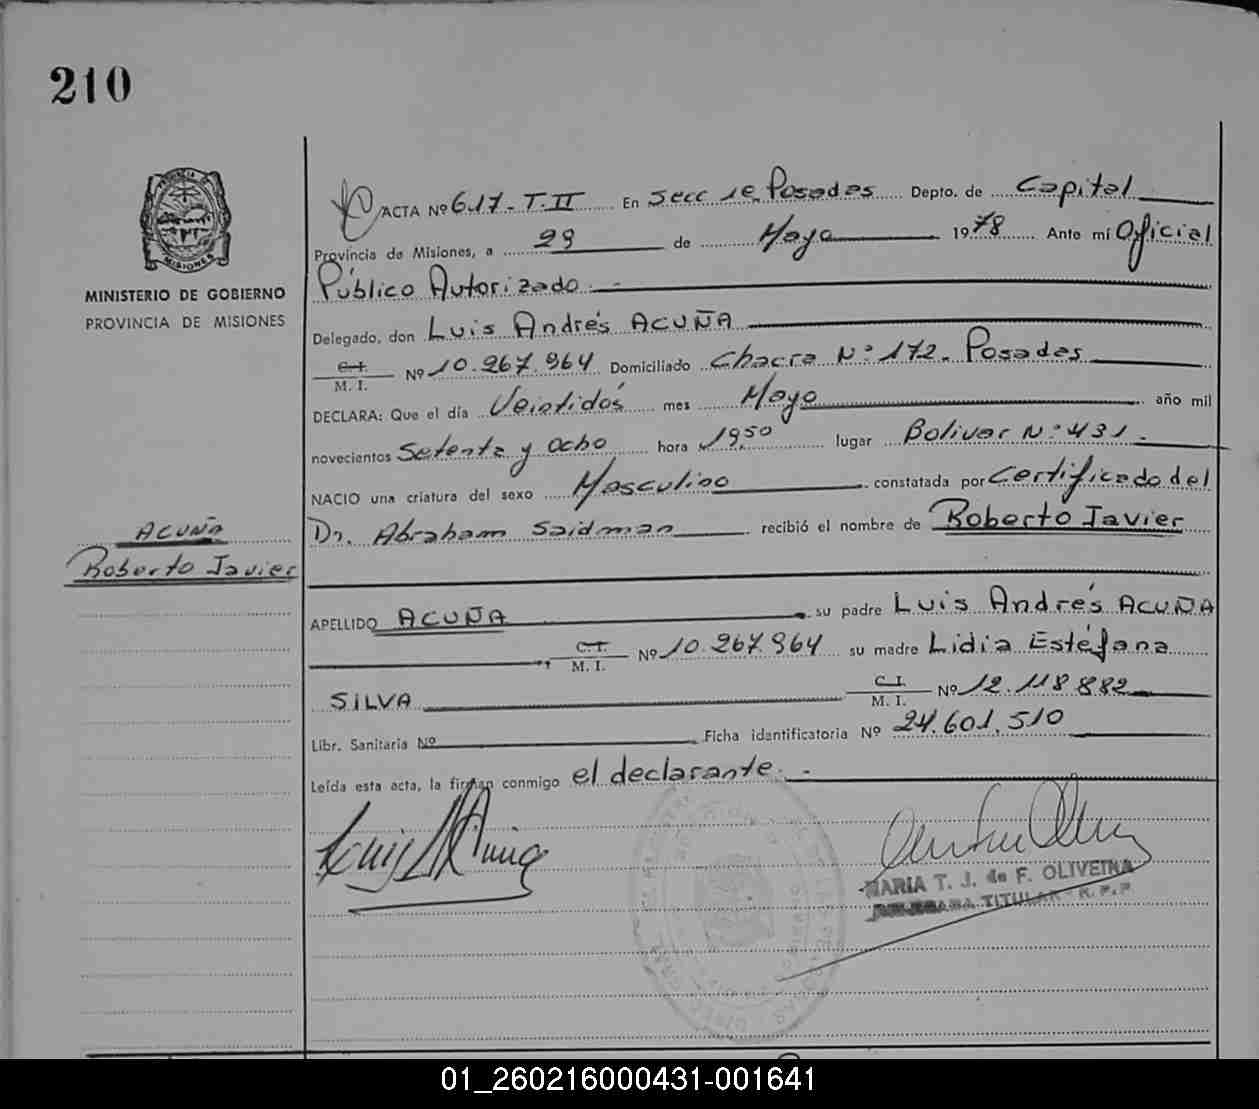 210
ACTA Nº 617 - T. II En Secc 1e. Posadas Depto. de Capital
Provincia de Misiones, a 29 de Mayo 1978 Ante mí Oficial
MINISTERIO DE GOBIERNO
PROVINCIA DE MISIONES
Público Autorizado
Delegado, don Luis Andrés ACUÑA
C. I.
M. I. Nº 10.267.964 Domiciliado Chacra Nº 172. Posadas
DECLARA: Que el día Veintidós mes Mayo año mil
novecientos Setenta y Ocho hora 19,50 lugar Bolivar Nº 431.
NACIO una criatura del sexo Masculino constatada por Certificado del
Dr. Abraham Saidman recibió el nombre de Roberto Javier
ACUÑA
Roberto Javier
APELLIDO ACUÑA su padre Luis Andrés ACUÑA
C. I.
M. I. Nº 10.267.964 su madre Lidia Estéfana
SILVA C. I.
M. I. Nº 12.118.882
Libr. Sanitaria Nº Ficha identificatoria Nº 24.601.510
Leída esta acta, la firman conmigo el declarante.
MARIA T. J. de F. OLIVEIRA
DELEGADA TITULAR - R. P. P.
01_260216000431-001641